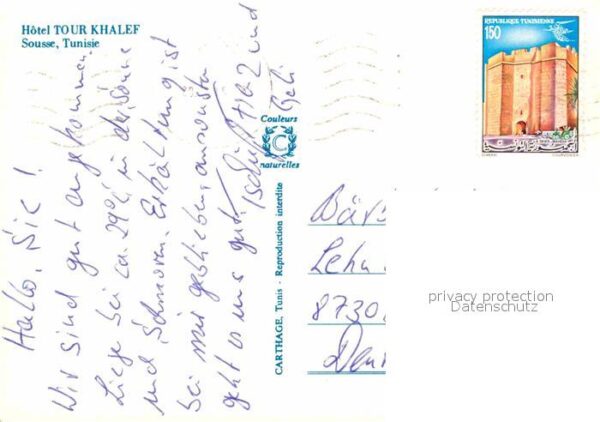 Hôtel TOUR KHALEF
Sousse, Tunisie
Hallo, Sie!
Wir sind gut angekommen.
Liege bei ca. 29°C in der Sonne
und Schmoren. Erkältung ist
bei mir geblieben, ansonsten
geht es uns gut.
und
Couleurs
C
naturelles
CARTHAGE, Tunis - Reproduction interdite
REPUBLIQUE TUNISIENNE
150
Bär
Lehn
8730
privacy protection
Datenschutz